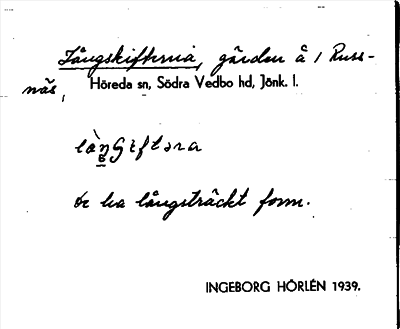 Långskifterna, gärden å 1 Russ-
näs,
Höreda sn, Södra Vedbo hd, Jönk. l.
de ha långsträckt form.
INGEBORG HÖRLÉN 1939.